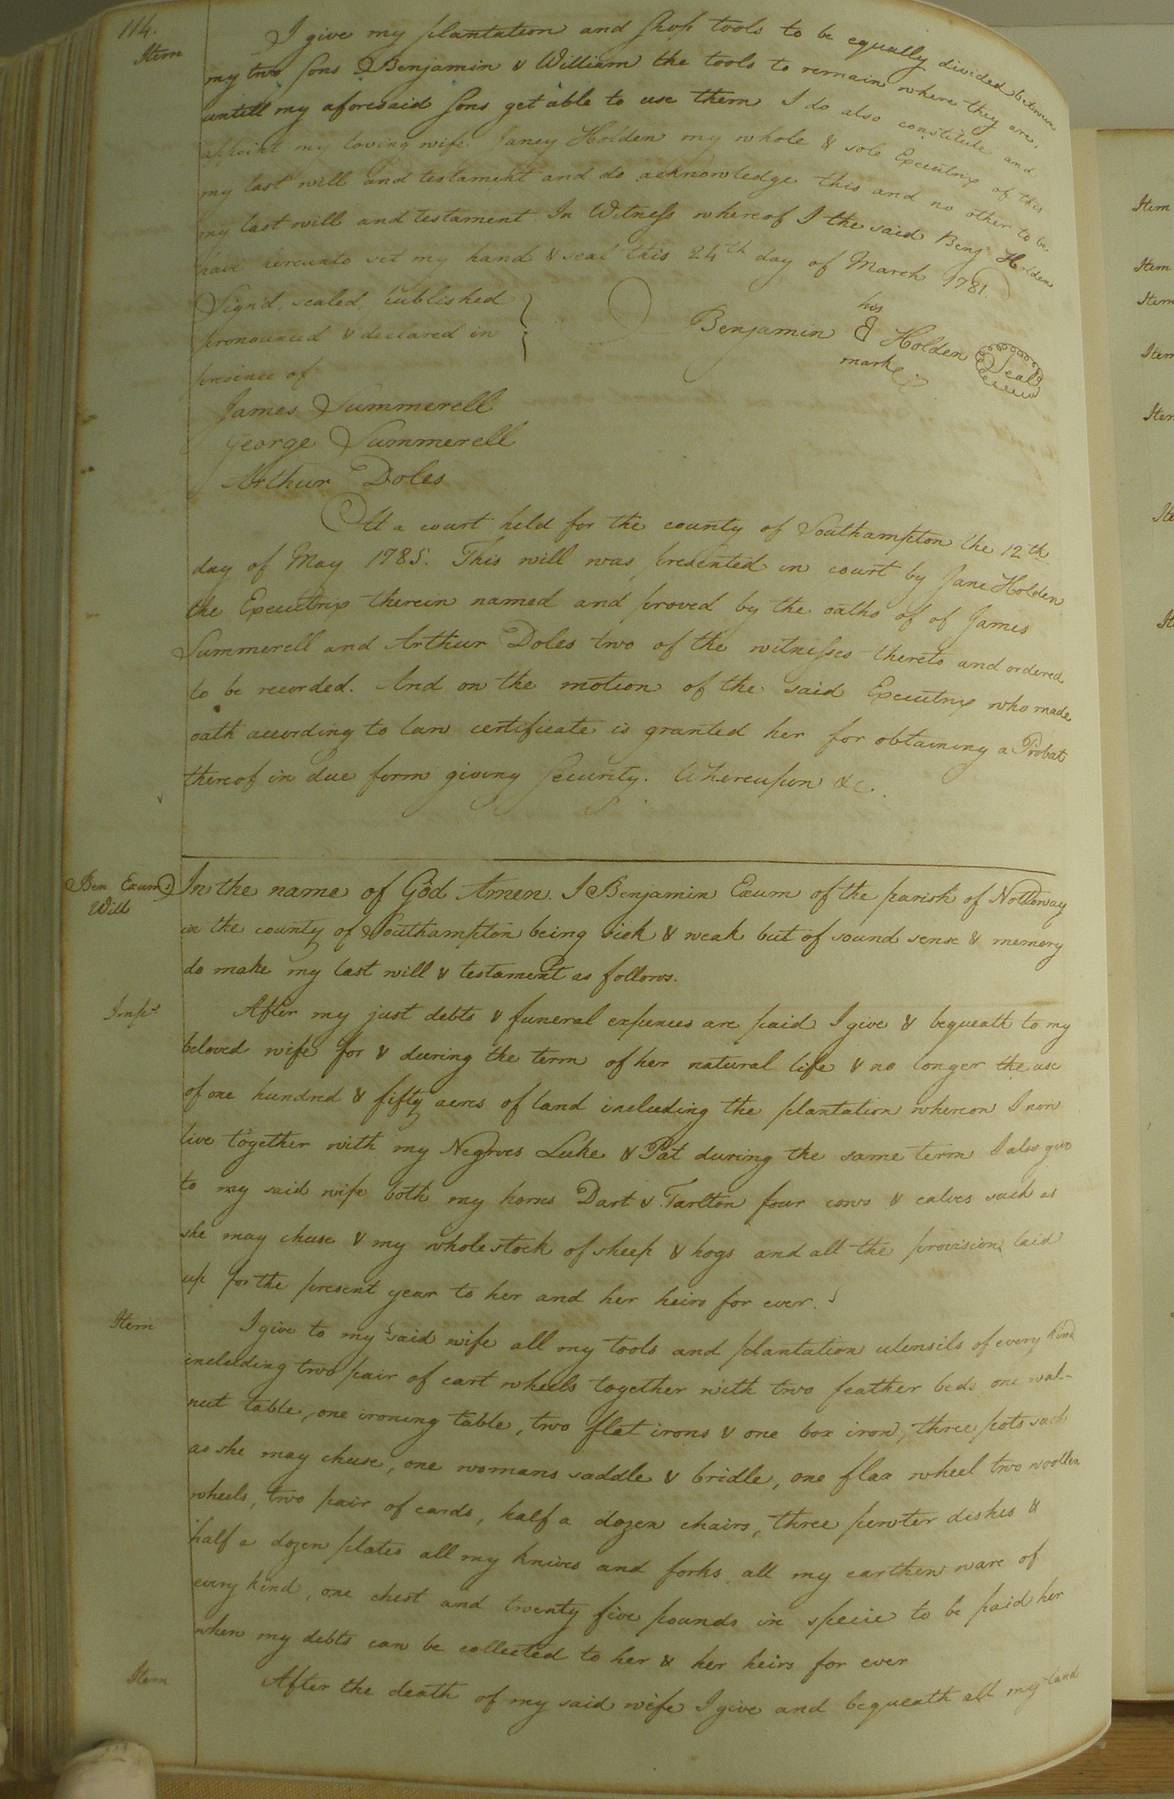 114.
Item I give my plantation and Shop tools to be equally divided between
my two Sons Benjamin & William the tools to remain where they are,
untill my aforesaid Sons get able to use them I do also constitute and
appoint my loving wife Janey Holden my whole & sole Executrix of this
my last will and testament and do acknowledge this and no other to be
my last will and testament In Witness whereof I the said Benj. Holden
have hereunto set my hand & seal this 24th day of March 1781.
Sign'd, sealed, Published
pronounced & declared in
presence of
his
Benjamin B Holden Seal
mark
James Summerell
George Summerell
Arthur Doles
At a court held for the county of Southampton the 12th
day of May 1785. This will was presented in court by Jane Holden
the Executrix therein named and proved by the oaths of of James
Summerell and Arthur Doles two of the witnesses thereto and ordered
to be recorded. And on the motion of the said Executrix who made
oath according to law certificate is granted her for obtaining a Probat
thereof in due form giving Security. Whereupon &c.
Ben Exum's
Will
In the name of God Amen. I Benjamin Exum of the parish of Nottoway
in the county of Southampton being sick & weak but of sound sense & memory
do make my last will & testament as follows.
Imps After my just debts & funeral expences are paid I give & bequeath to my
beloved wife for & during the term of her natural life & no longer the use
of one hundred & fifty acres of land including the plantation whereon I now
live together with my Negroes Luke & Pat during the same term I also give
to my said wife both my horses Dart & Tarlton four cows & calves such as
she may chuse & my whole stock of sheep & hogs and all the provisions laid
up for the present year to her and her heirs for ever.
Item I give to my said wife all my tools and plantation utensils of every kind
including two pair of cart wheels together with two feather beds one wal-
nut table, one ironing table, two flat irons & one box iron, three pots such
as she may chuse, one womans saddle & bridle, one flax wheel two woollen
wheels, two pair of cards, half a dozen chairs, three pewter dishes &
half a dozen plates all my knives and forks all my earthen ware of
every kind, one chest and twenty five pounds in specie to be paid her
when my debts can be collected to her & her heirs for ever
Item After the death of my said wife I give and bequeath all my land
Item
Item
Item
Item
Item